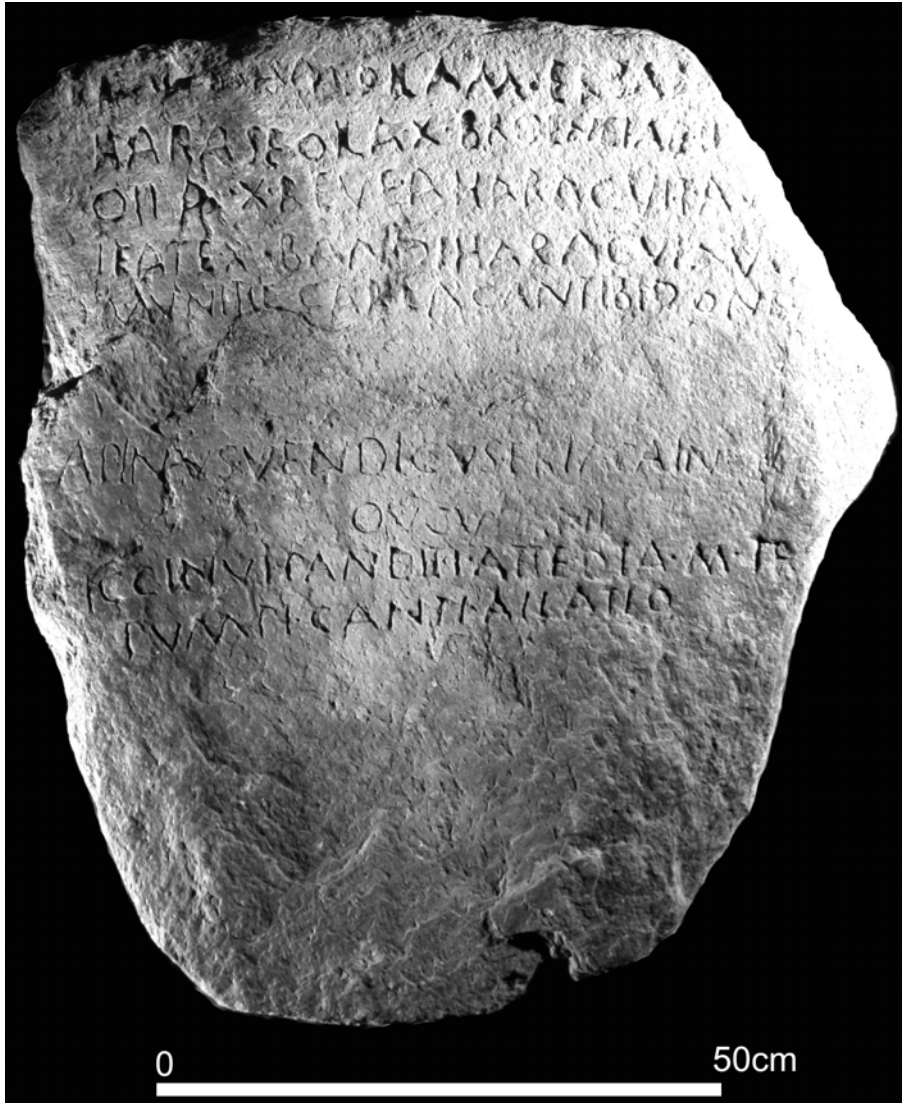 OILAM·ERBAM
HARASE·OILA·X·BROENEIAE·H
OILA·X·REVE·AHARACVI·T·AV
IEATE·X·BANDI HARAICVI·AV
MVNITIE CARIA CANTIBIDONE
APINVS·VENDICVS·ERIACAIN
ICCINVI·PANDITI·ATTEDIA·M·TR
PVMPI·CANTI·AILATIO
0 50cm